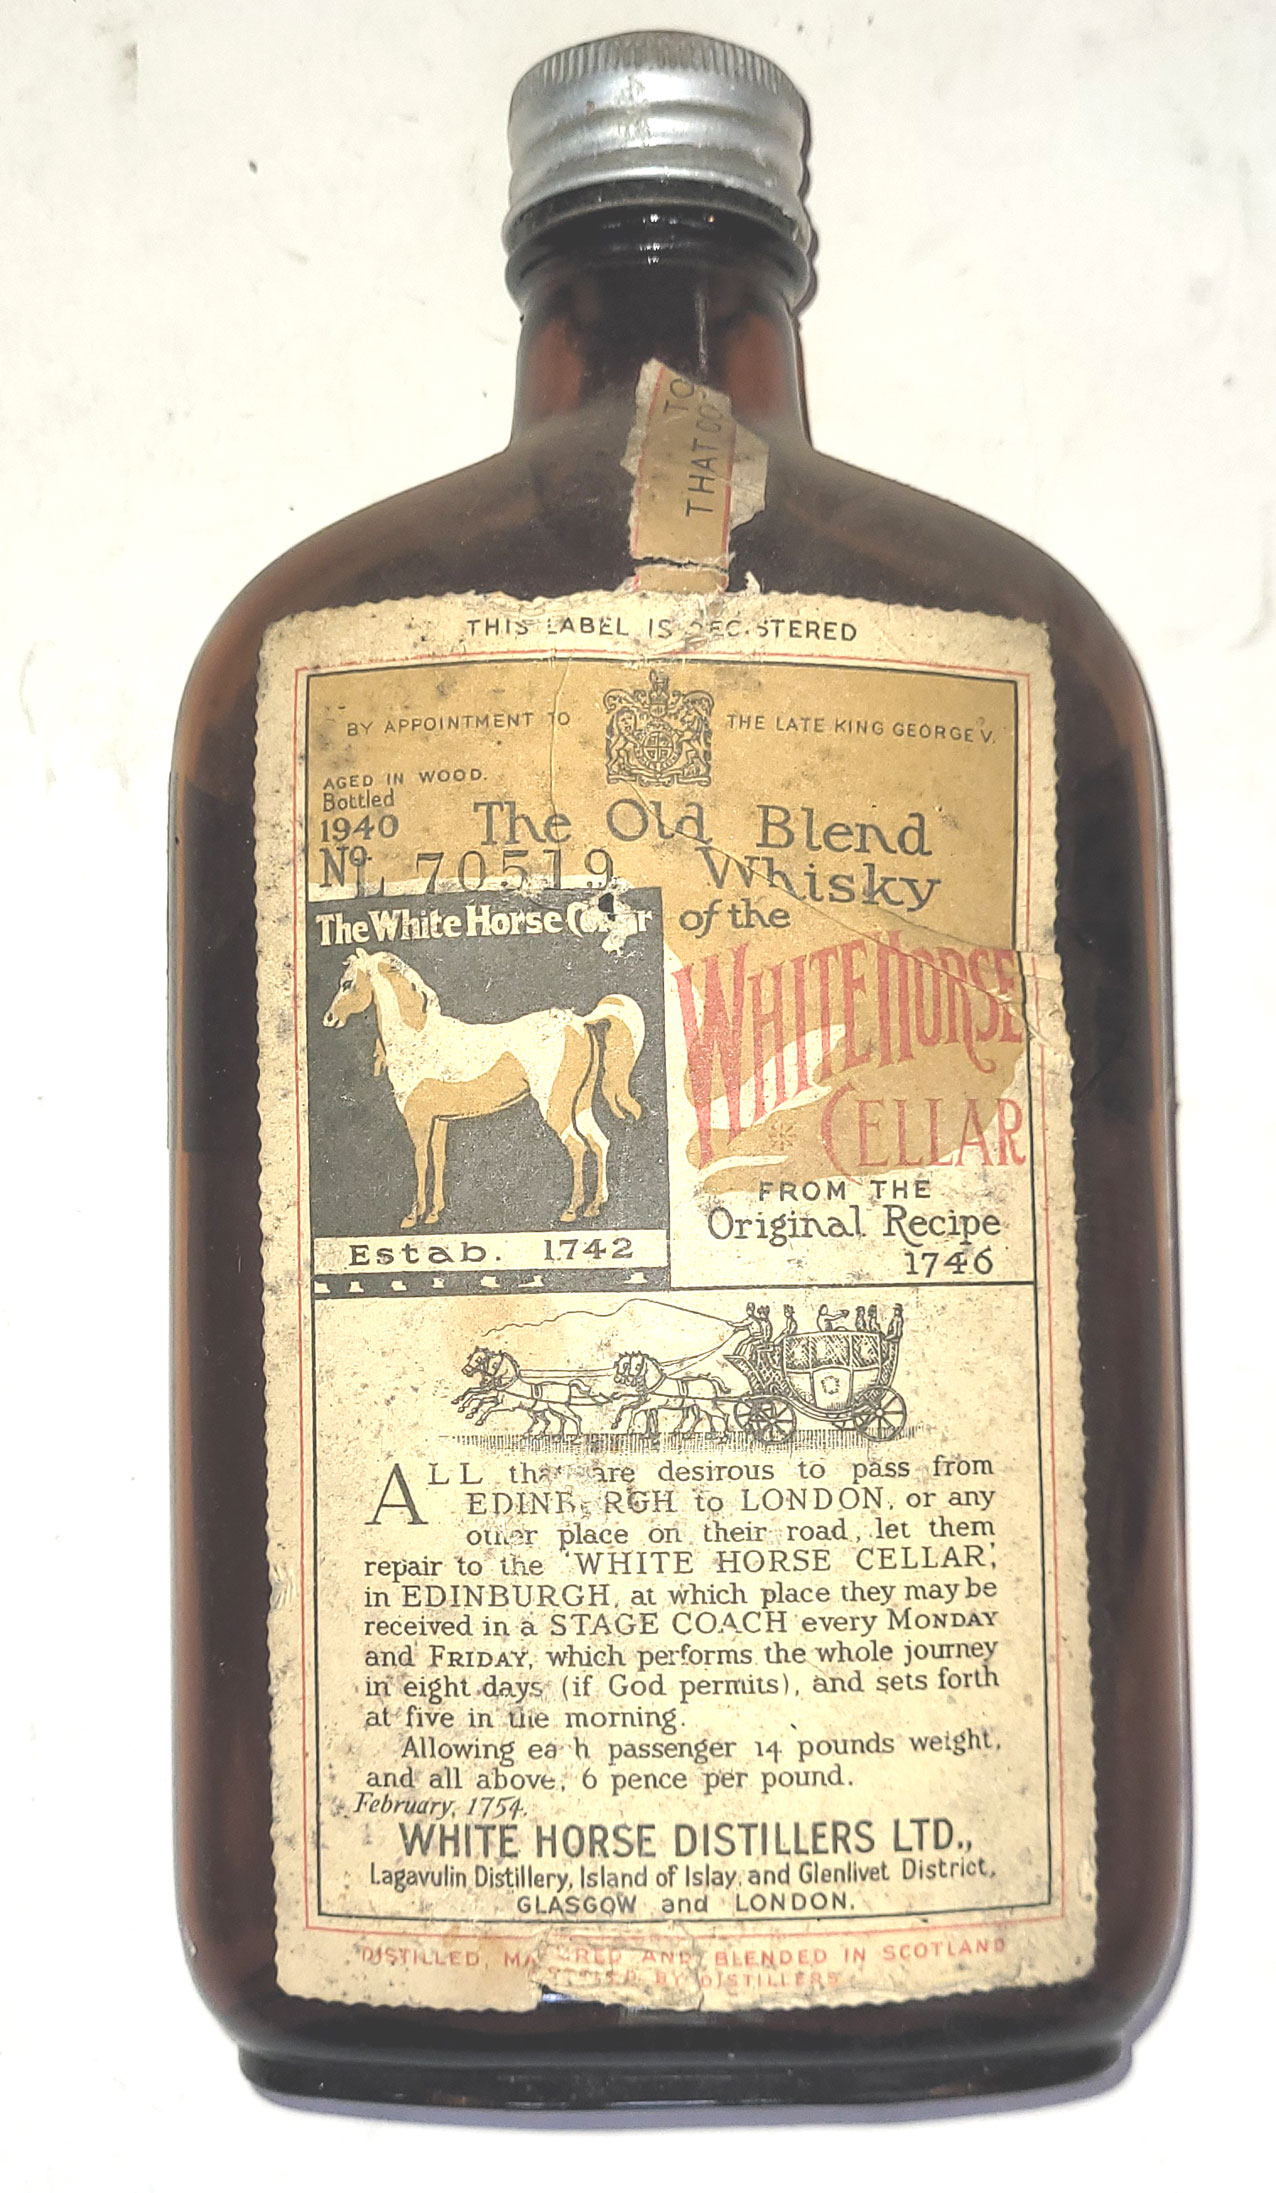 TO
THAT
THIS LABEL IS REGISTERED
BY APPOINTMENT TO THE LATE KING GEORGE V.
AGED IN WOOD.
Bottled
1940
The Old Blend
No. L 70519 Whisky
The White Horse Cellar of the
WHITE HORSE
CELLAR
FROM THE
Original Recipe
Estab. 1742 1746
ALL that are desirous to pass from
EDINBURGH to LONDON, or any
other place on their road, let them
repair to the 'WHITE HORSE CELLAR',
in EDINBURGH, at which place they may be
received in a STAGE COACH every MONDAY
and FRIDAY, which performs the whole journey
in eight days (if God permits), and sets forth
at five in the morning.
Allowing each passenger 14 pounds weight,
and all above, 6 pence per pound.
February, 1754.
WHITE HORSE DISTILLERS LTD.,
Lagavulin Distillery, Island of Islay, and Glenlivet District,
GLASGOW and LONDON.
DISTILLED, MATURED AND BLENDED IN SCOTLAND
BY DISTILLERS